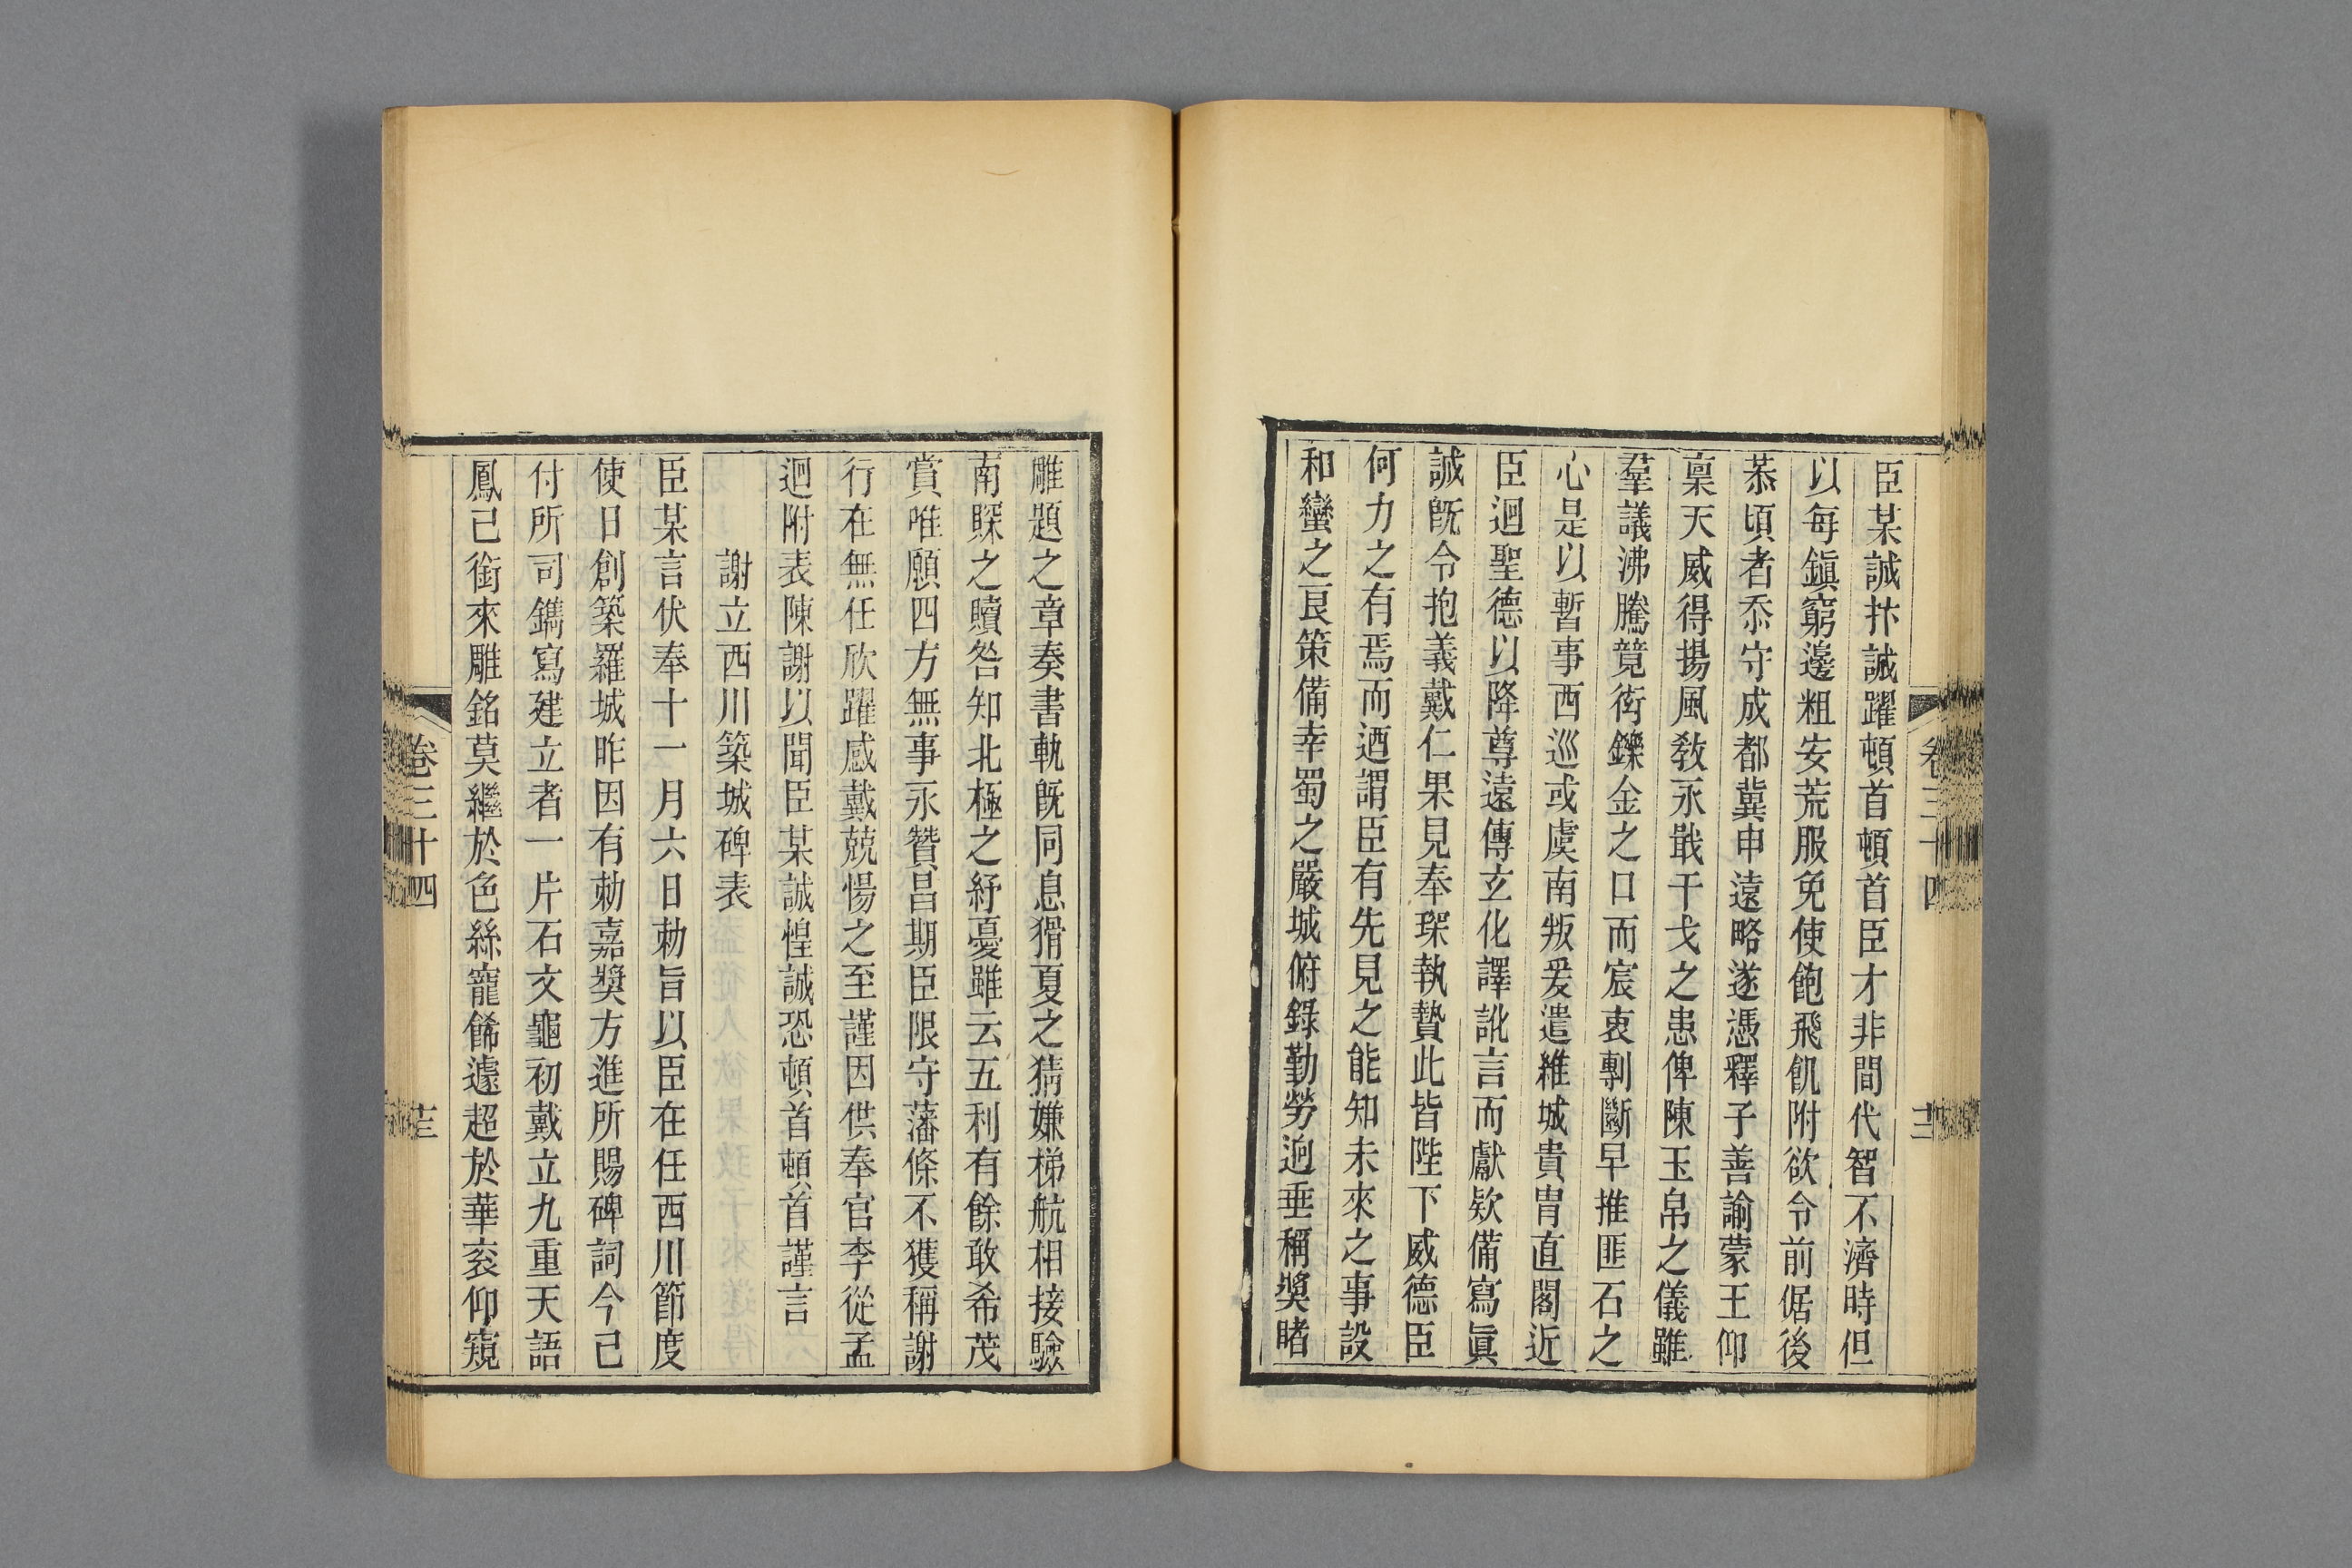 臣某誠抃誠躍頓首頓首臣才非間代智不濟時但
以每鎭窮邊粗安荒服免使飽飛飢附欲令前倨後
恭頃者忝守成都冀申遠略遂憑釋子善諭蒙王仰
稟天威得揚風敎永戢干戈之患俾陳玉帛之儀雖
羣議沸騰競銜鑠金之口而宸衷剸斷早推匪石之
心是以暫事西巡或虞南叛爰遣維城貴胄直閣近
臣迴聖德以降尊遠傳玄化譯訛言而獻欵備寫眞
誠旣令抱義戴仁果見奉琛執贄此皆陛下威德臣
何力之有焉而迺謂臣有先見之能知未來之事設
和蠻之良策備幸蜀之嚴城俯錄勤勞迥垂稱奬睹
卷三十四
雕題之章奏書軌旣同息猾夏之猜嫌梯航相接驗
南賝之贖咎知北極之紓憂雖云五利有餘敢希茂
賞唯願四方無事永贊昌期臣限守藩條不獲稱謝
行在無任欣躍感戴兢惕之至謹因供奉官李從孟
迴附表陳謝以聞臣某誠惶誠恐頓首頓首謹言
謝立西川築城碑表
臣某言伏奉十一月六日勅旨以臣在任西川節度
使日創築羅城昨因有勅嘉奬方進所賜碑詞今已
付所司鐫寫建立者一片石文龜初戴立九重天語
鳳已銜來雕銘莫繼於色絲寵餙遽超於華衮仰窺
卷三十四
十三